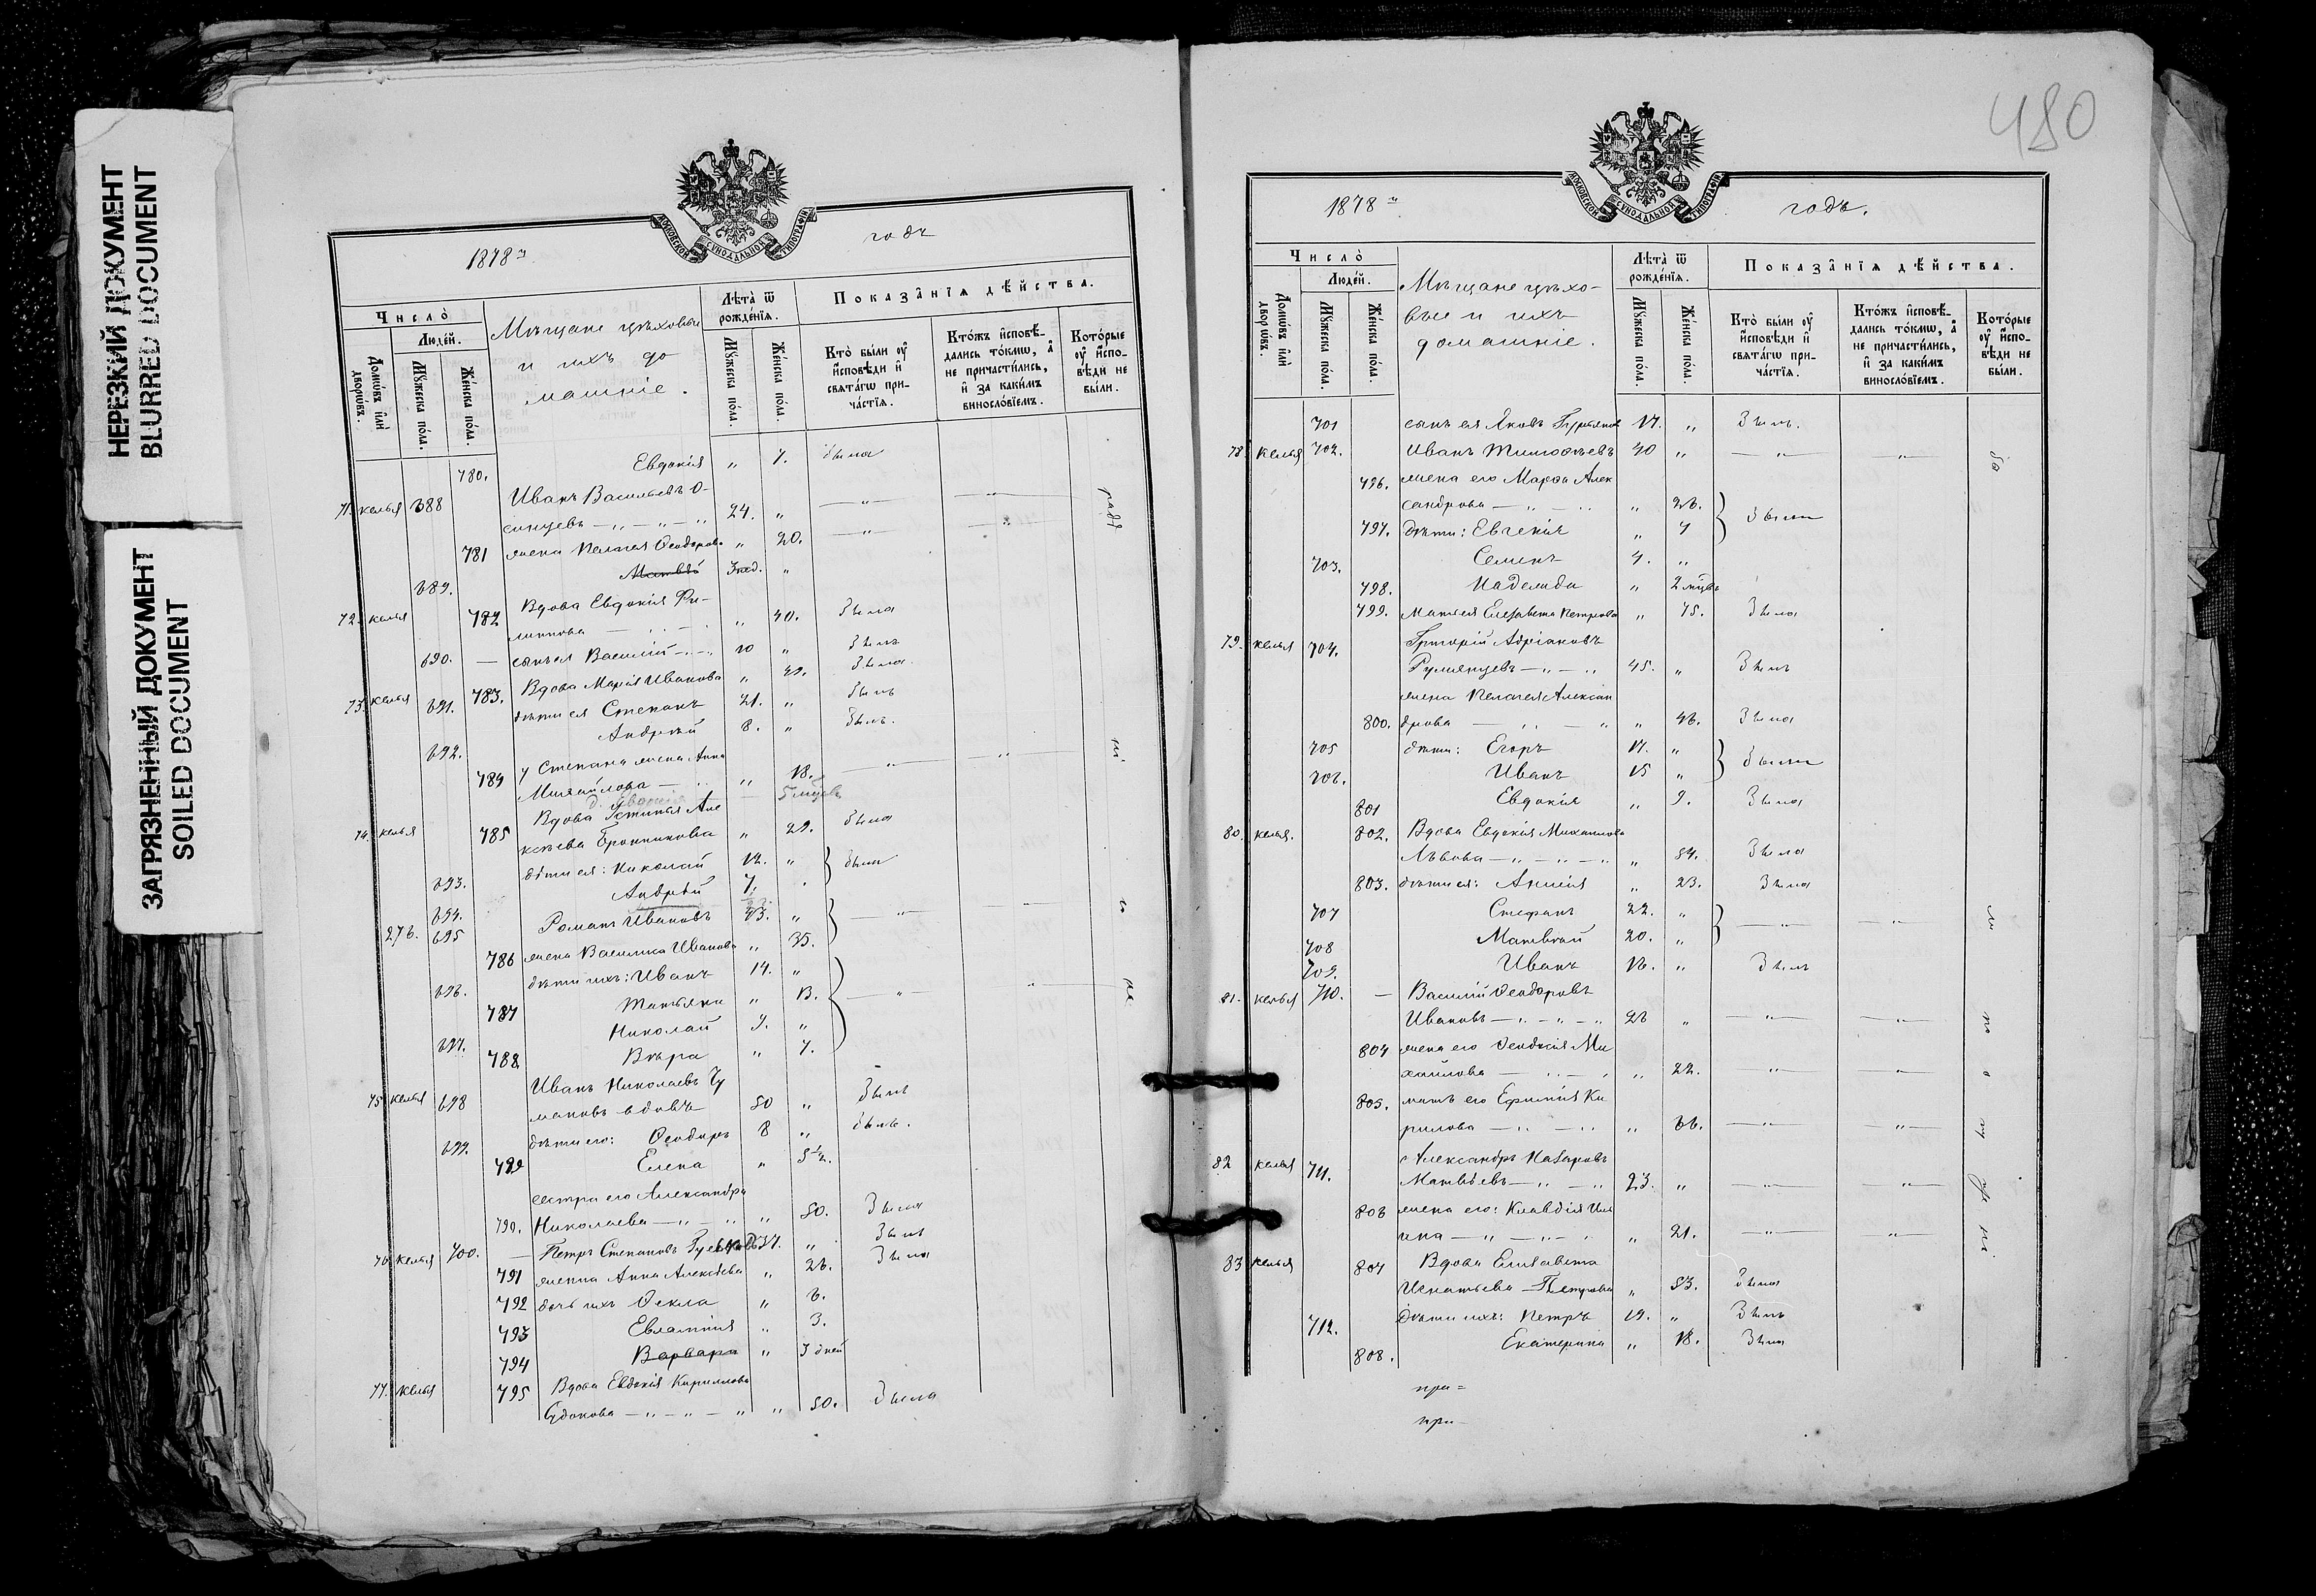 НЕРЕЗКИЙ ДОКУМЕНТ
BLURRED DOCUMENT
ЗАГРЯЗНЕННЫЙ ДОКУМЕНТ
SOILED DOCUMENT
МОСКОВСКОЙ СѴНОДАЛЬНОЙ ТИПОГРАФІИ
1878 годъ
Число̀
Людей.
Домѡвъ и҆лѝ дворѡвъ.
Мꙋ́жеска по́ла.
Же́нска по́ла.
Мѣщане цѣховые
и ихъ до
машніе.
Лѣта̀ ѿ рожде́нїѧ.
Мꙋ́жеска по́ла.
Же́нска по́ла.
Показа̑нїѧ дѣ́йства.
Кто̀ бы́ли ᲂу҆ и҆́сповѣди и҆ свѧта́гѡ прича́стїѧ.
Кто́жъ и҆сповѣ́дались то́кмѡ, а҆ не причасти́лись, и҆ за каки́мъ винослові́емъ.
Кото́рые ᲂу҆ и҆́сповѣди не бы́ли.
780. Евдокія " 7. была
71. келья 688 Иванъ Васильевъ О-
синцевъ 24. "
781 жена Пелагея Ѳеодорова " 20.
689. Матвѣй 3 нед. "
72. келья 782 Вдова Евдокія Фи-
липпова " 40. была
690. — сынъ ея Василій 20 " былъ
73. келья 783. Вдова Марія Иванова " 49. была
691. дѣти ея Степанъ 21. " былъ
692. Андрей 8. " былъ.
784 у Степана жена Анна
Михайлова " 18.
5 мцевъ
74. келья 785 Вдова Устинья Але
ксѣева Бронникова " 29. была
693. дѣти ея: Николай 12. " были
694. Андрей 7.
276. 695 Романъ Ивановъ 43. "
786 жена Василиса Иванова " 35.
696. дѣти ихъ: Иванъ 14. "
787 Татьяна " 13.
697. Николай 9. "
788 Вѣра " 7.
75. келья 698 Иванъ Николаевъ Чу
маковъ вдовъ 50 " былъ
699. дѣти его: Ѳеодоръ 8 " былъ.
789 Елена " 5½.
сестра его Александра
790. Николаева " 50. была
76. келья 700. — Петръ Степановъ 37. " былъ
791 жена Анна Алексѣева " 26. была
792 дочь ихъ Ѳекла " 6.
793 Евлампія " 3.
794 Варвара " 3 дней
77. келья 795 Вдова Евдокія Кириллова
Судокова " 50. была
480
МОСКОВСКОЙ СѴНОДАЛЬНОЙ ТИПОГРАФІИ
1878 годъ.
Число̀
Людей.
Домѡвъ и҆лѝ дворѡвъ.
Мꙋ́жеска по́ла.
Же́нска по́ла.
Мѣщане цѣхо-
вые и ихъ
домашніе.
Лѣта̀ ѿ рожде́нїѧ.
Мꙋ́жеска по́ла.
Же́нска по́ла.
Показа̑нїѧ дѣ́йства.
Кто̀ бы́ли ᲂу҆ и҆́сповѣди и҆ свѧта́гѡ прича́стїѧ.
Кто́жъ и҆сповѣ́дались то́кмѡ, а҆ не причасти́лись, и҆ за каки́мъ винослові́емъ.
Кото́рые ᲂу҆ и҆́сповѣди не бы́ли.
701 сынъ ея Яковъ 17. " былъ.
78. келья 702. Иванъ Тимоѳеевъ 40 "
796. жена его Марѳа Алек
сандрова " 26.
797. дѣти: Евгенія " 7 были
703. Семенъ 4. "
798. Надежда " 2 мцевъ
799. Матея Елизавета Петрова " 75. была
79. келья 704. Григорій Адріановъ
Румянцевъ 45. " былъ
жена Пелагея Алексан
800. дрова " 46. была
705 дѣти: Егоръ 17. " были
706. Иванъ 15 "
801 Евдокія " 9. была
80. келья. 802. Вдова Евдокія Михаилова
Львова " 54. была
803. дѣти ея: Анисія " 23. была
707 Стефанъ 22. "
708 Матвѣй 20. "
709. Иванъ 16. " былъ
81. келья 710. — Василій Ѳеодоровъ
Ивановъ 26 "
804 жена его Ѳеодосія Ми
хаилова " 22.
805. мать его Ефимія Ки
рилова " 66.
82 келья 711. Александръ Назаровъ
Матвѣевъ 23. "
806 жена его: Клавдія Иль
ина " 21.
83 келья 807 Вдова Елизавета
Игнатьева Петрова " 53. была
712. дѣти ихъ: Петръ 19. " былъ
808. Екатерина " 18. была
при=
при-